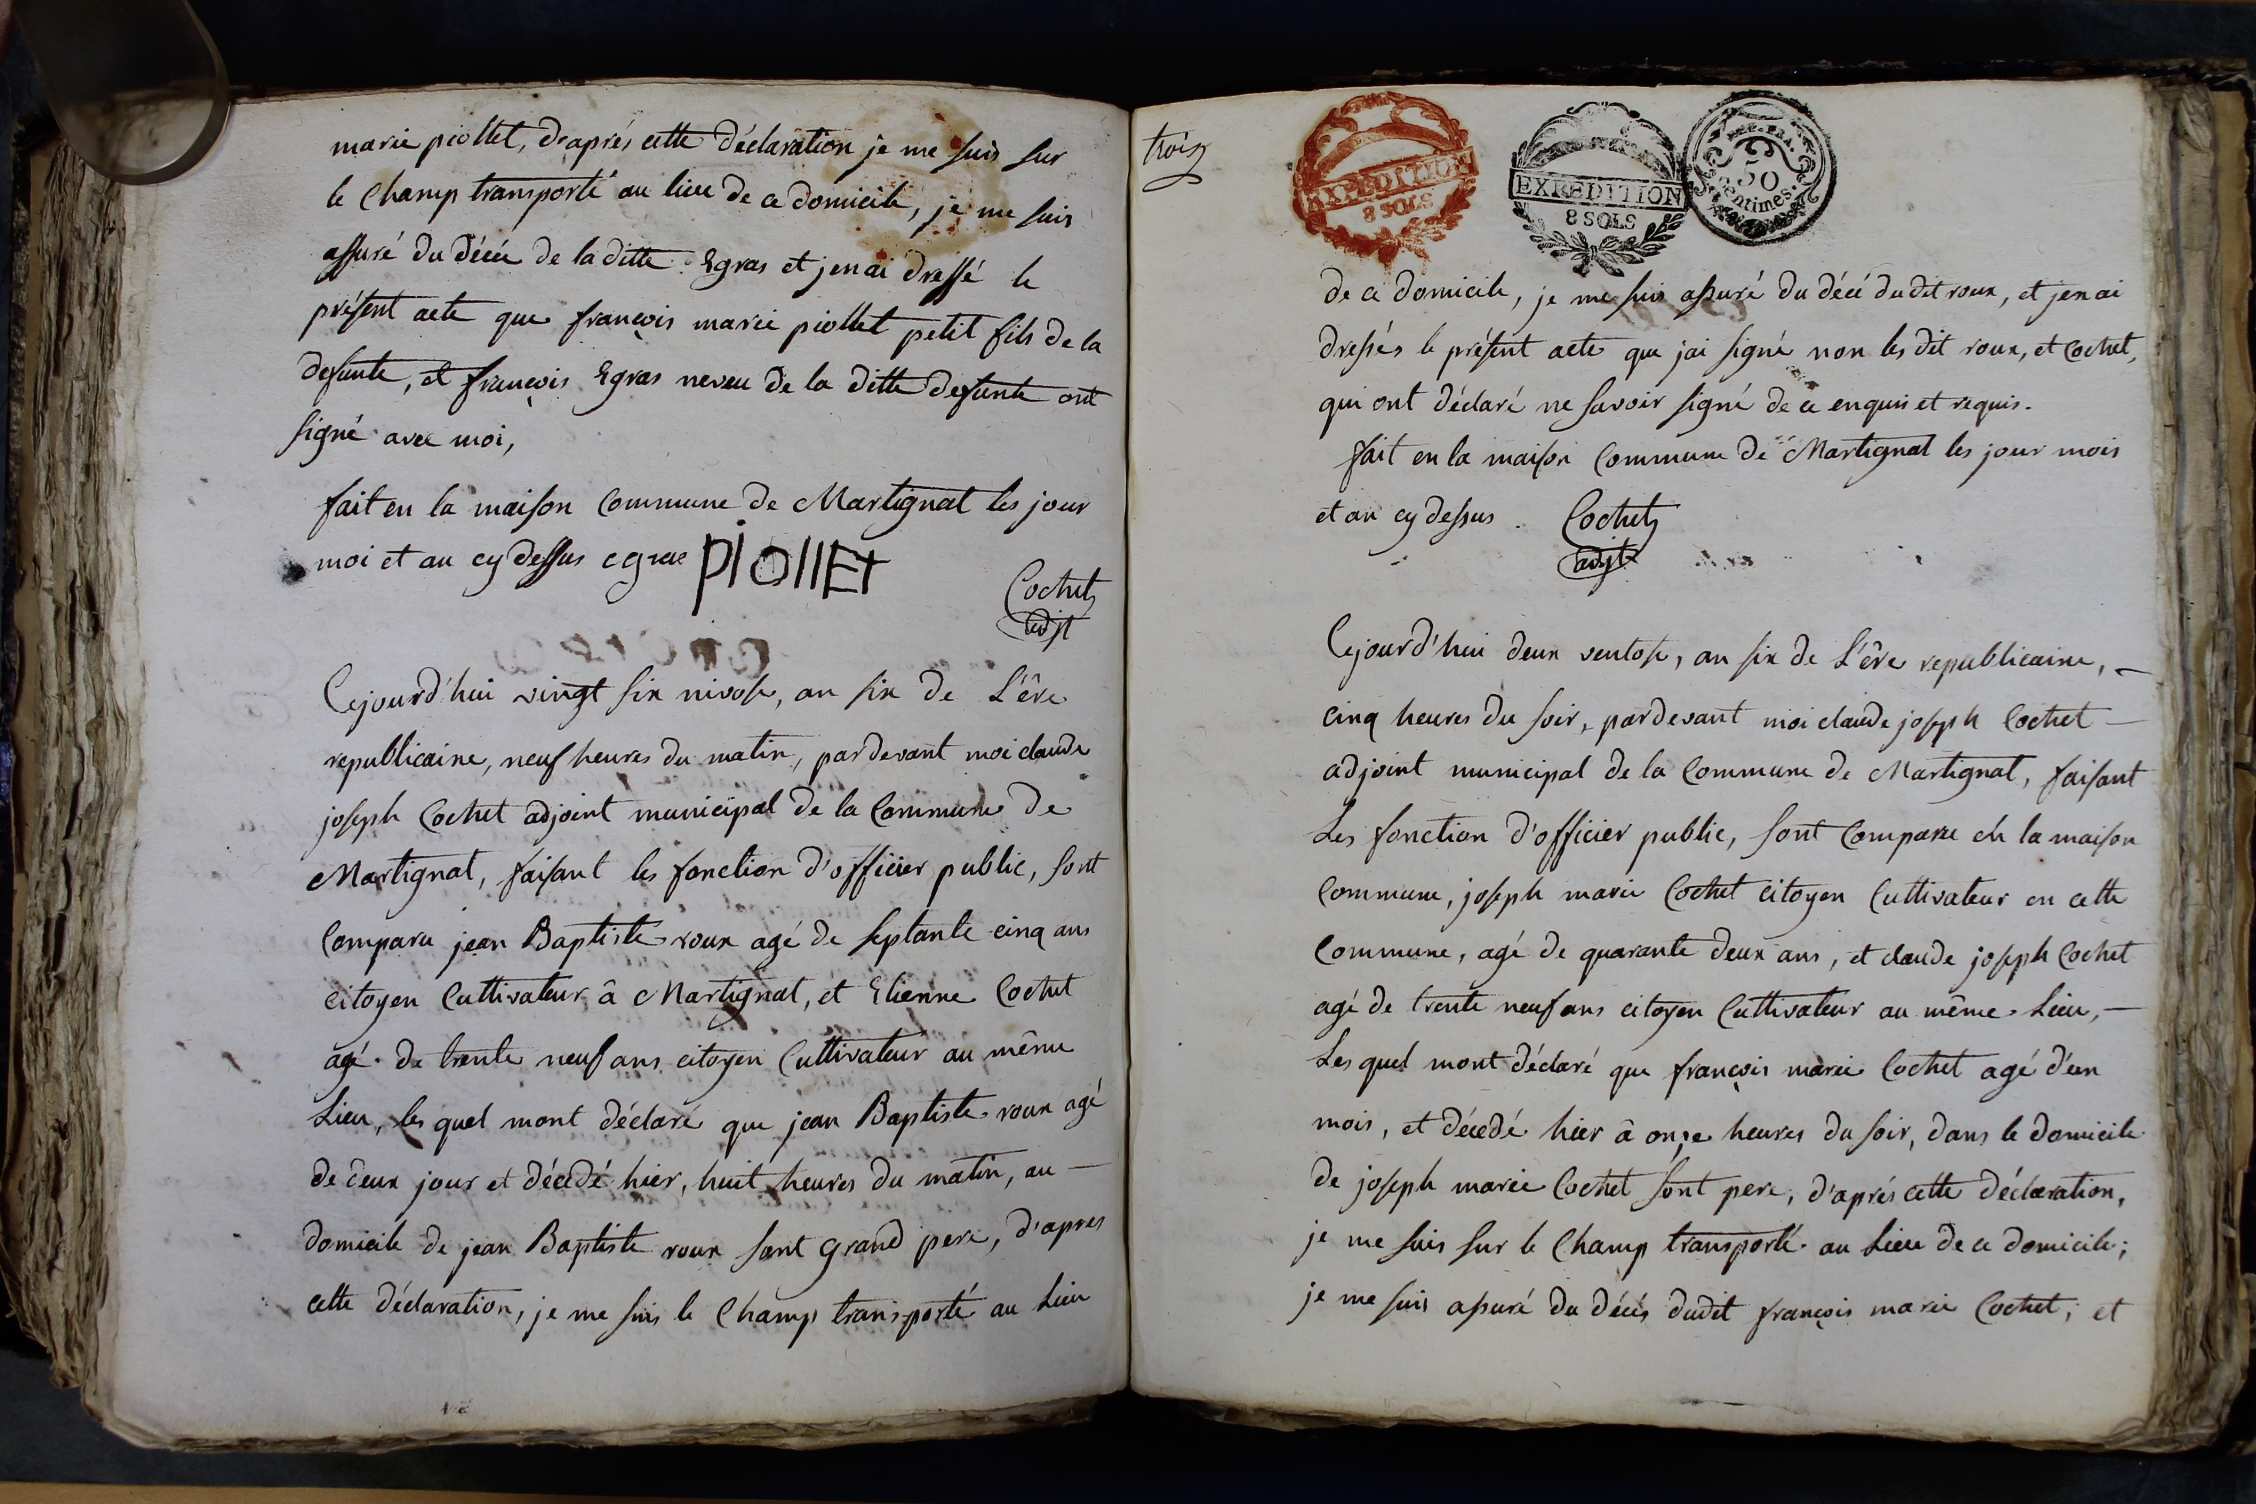 marie piollet, d'aprés cette déclaration je me suis sur
le Champ transporté au lieu de ce domicile, je me suis
assuré du décé de la ditte Egras et jen ai dressé le
présent acte que françois marie piollet petit fils de la
defunte, et françois Egras neveu de la ditte defunte ont
signé avec moi,
fait en la maison Commune de Martignat les jour
moi et an cy dessus egras PIOllEt
Cochet
adjt
Cejourd'hui vingt six nivose, an six de L'ère
republicaine, neuf heures du matin, pardevant moi claude
joseph Cochet adjoint municipal de la Commune de
Martignat, faisant les fonction d'officier public, sont
Comparu jean Baptiste roux agé de septante cinq ans
citoyen Cultivateur â Martignat, et Etienne Cochet
agé de trente neuf ans citoyen Cultivateur au même
Lieu, les quel mont déclaré que jean Baptiste roux agé
de deux jour et décedé hier, huit heures du matin, au —
domicile de jean Baptiste roux sont grand pere, d'apres
cette déclaration, je me suis le Champ transporté au Lieu
trois
EXPEDITION
8 SOLS
EXPEDITION
8 SOLS
REP. FRA.
50
Centimes.
de ce domicile, je me suis assuré du décé dudit roux, et jen ai
dressés le présent acte que jai signé non les dit roux, et Cochet,
qui ont déclaré ne savoir signé de ce enquis et requis.
fait en la maison Commune de Martignat les jour mois
et an cy dessus . Cochet
adjt
Cejourd'hui deux ventose, an six de L'ère republicaine, —
cinq heures du soir, pardevant moi claude joseph Cochet —
adjoint municipal de la Commune de Martignat, faisant
Les fonction d'officier public, sont Comparu en la maison
Commune, joseph marie Cochet citoyen Cultivateur en cette
Commune, agé de quarante deux ans, et claude joseph Cochet
agé de trente neuf ans citoyen Cultivateur au même Lieu, —
Les quel mont déclaré que françois marie Cochet agé d'un
mois, et décedé hier â onze heures du soir, dans le domicile
de joseph marie Cochet sont pere, d'aprés cette déclaration,
je me suis sur le Champ transporté au Lieu de ce domicile;
je me suis assuré du décés dudit françois marie Cochet; et